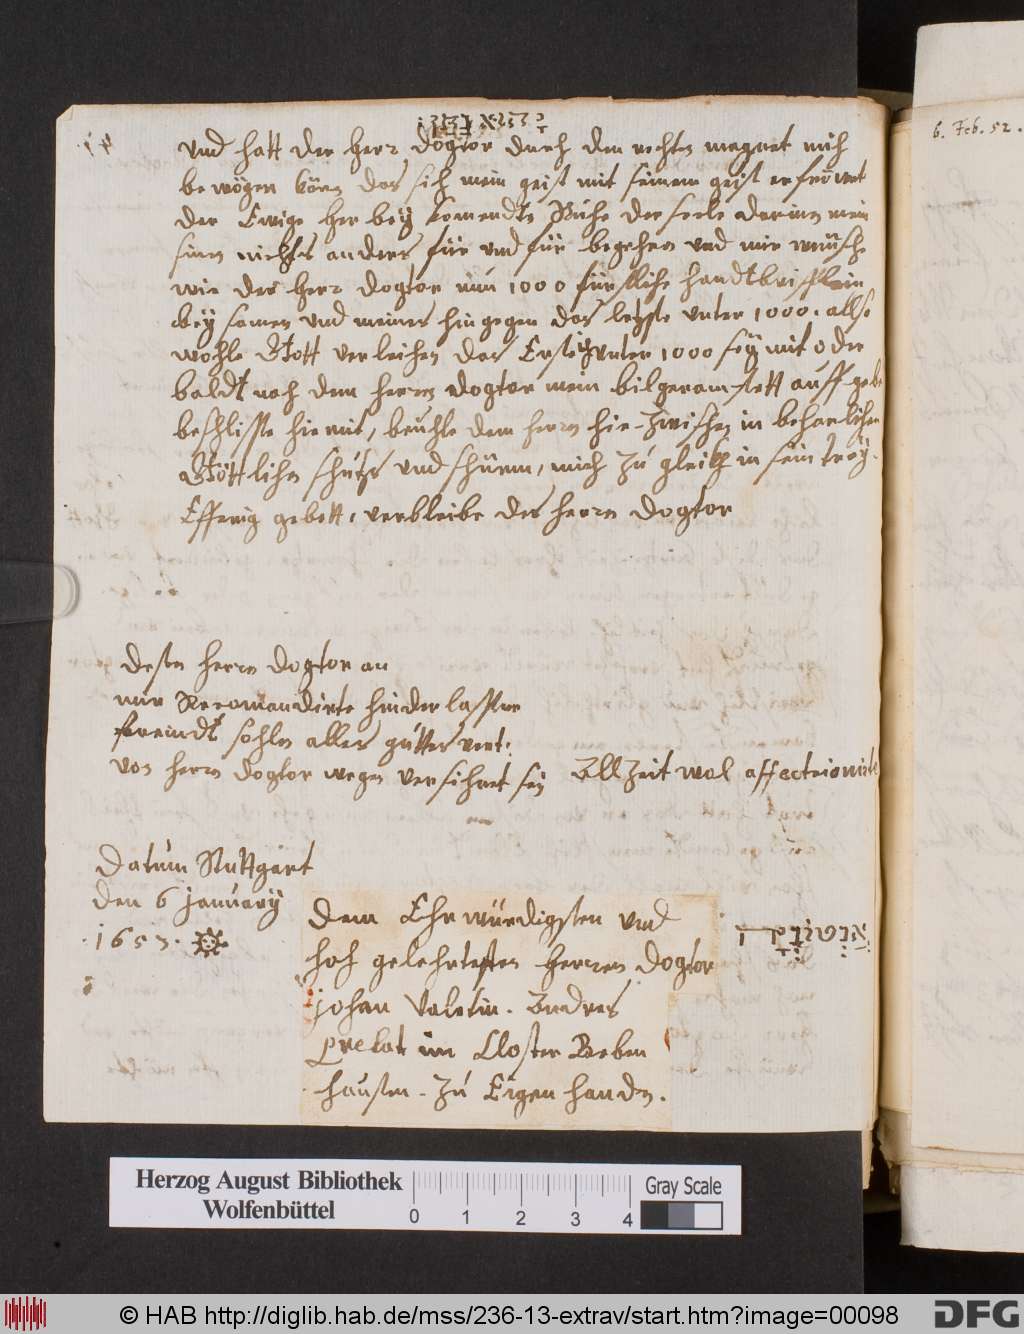 und hatt der herr dogtor durch den rechten magnet mich
bewögen körn das sich mein geist mit seinem geist erfrowet
der Ewige herbey komendte Ruhe der seele darinn mein
sinn nichts anders für und für begehrn und mir wünsche
wie der herr dogtor nun 1000 fürstliche handtbrifflein
beysamen und meiner hingegen das letzte unter 1000. allso
wohle Gott verleihen das Erste unter 1000 sey mit oder
baldt nach dem herrn dogtor mein bilgeram statt auff gebe
beschlisse hiemit, bevehle dem herrn hie-zwischen in beharlichen
Göttlichen schutz und schürm, mich zu gleich in sein trey.
Efferig gebett, verbleibe des herrn dogtor
desen herrn dogtor an
mir Recomandirte hinderlassne
freindt sohlen alles guttes
von herrn dogtor wegen versichert sey
Allzeit wol affectionirte
Datum Stuttgart
den 6 january
1653.
Dem Ehrwürdigsten und
hoch gelehrtesten herren dogtor
johan Valetin. Andres
Prelat im Closter Beben
hausen. zu Eigen handn.
6. Feb. 52.
Herzog August Bibliothek
Wolfenbüttel
0 1 2 3 4
Gray Scale
© HAB http://diglib.hab.de/mss/236-13-extrav/start.htm?image=00098
DFG